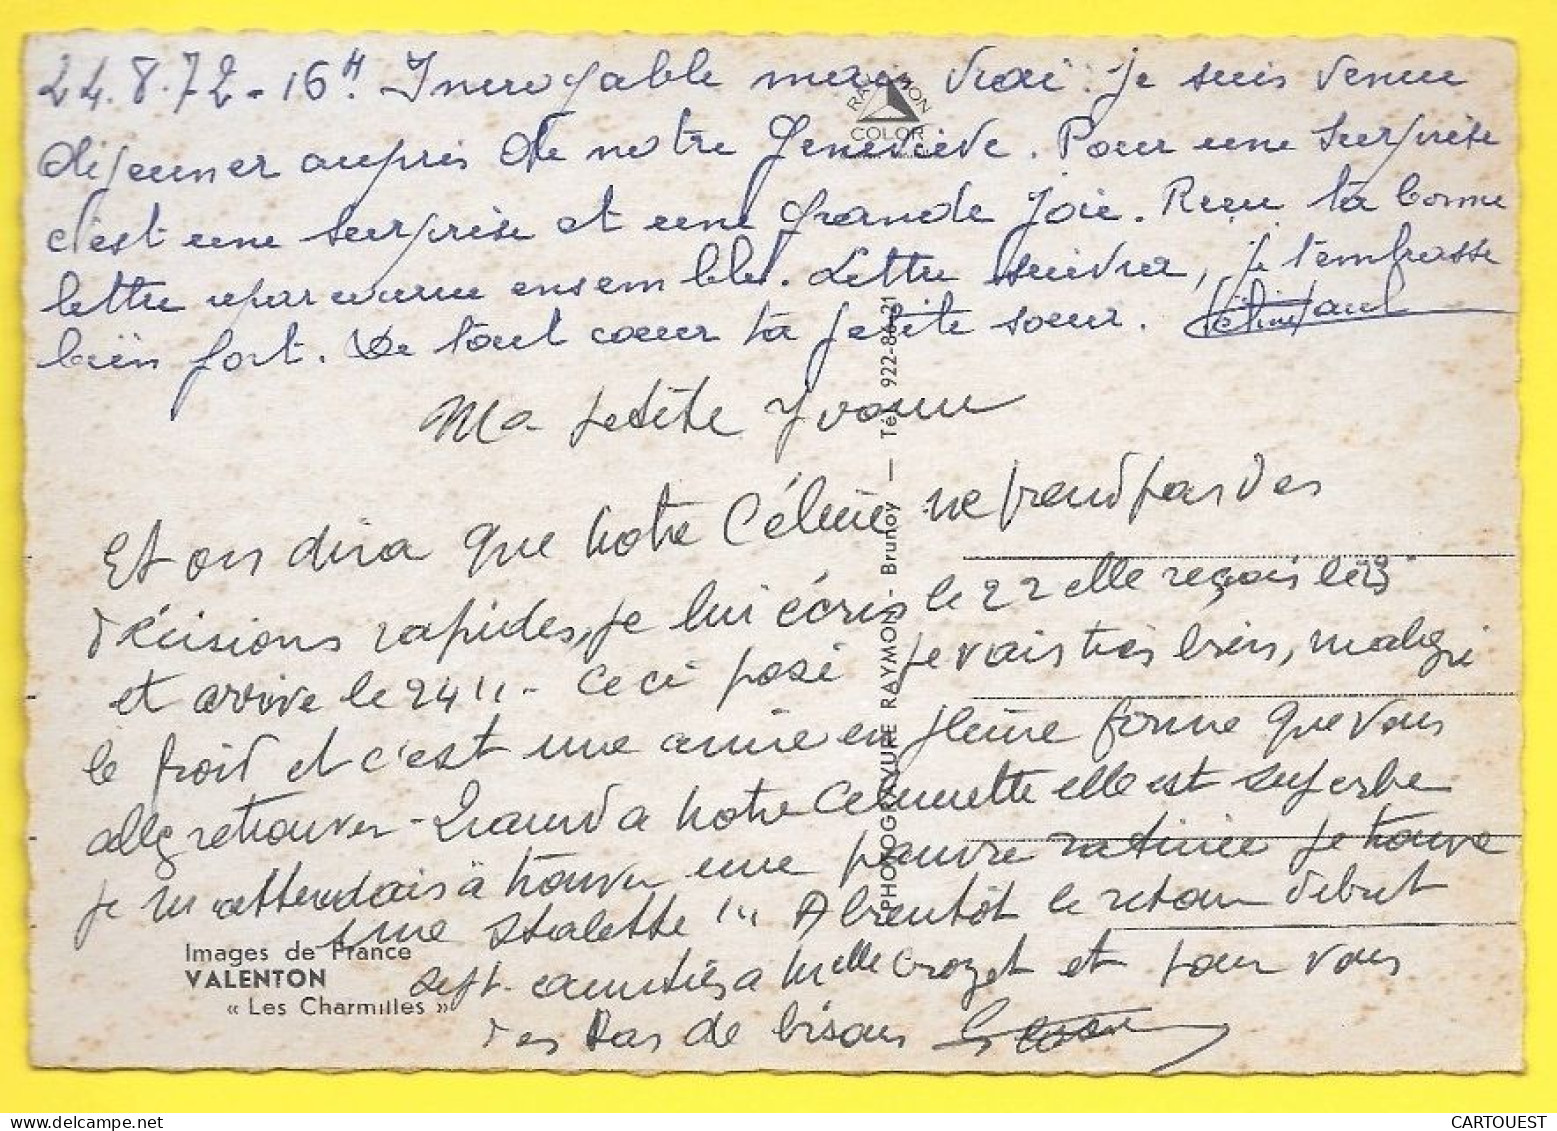 24.8.72 - 16H. Incroyable mais vrai : je suis venue
déjeuner auprès de notre Geneviève. Pour une surprise
c'est une surprise et une grande joie. Reçu ta bonne
lettre parcourue ensemble. Lettre suivra, je t'embrasse
bien fort. De tout coeur ta petite soeur.
RAYMON
COLOR
Ma petite Yvonne
Et on dira que notre Céline ne prend pas des
décisions rapides, je lui écris le 22 elle reçois le 23
et arrive le 24 !! - Ceci posé je vais très bien, malgré
le froid et c'est une amie en pleine forme que vous
allez retrouver - Quand à notre Célinette elle est superbe
je m'attendais à trouver une pauvre ratinée je trouve
une !!! A bientôt le retour début
sept. amitiés à Melle Crozet et pour vous
des tas de bisous
Images de France
VALENTON
« Les Charmilles »
PHOTOGRAVURE RAYMON - Brunoy — Tél. 922-86-21
CARTOUEST